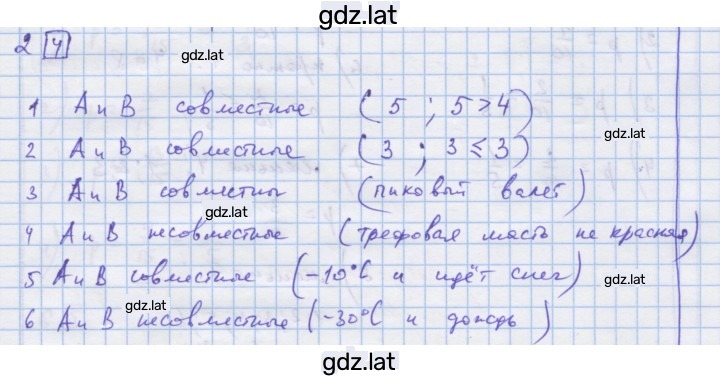 gdz.lat
2 4
gdz.lat
1 А и В совместные (5 ; 5>4)
gdz.lat
2 А и В совместные (3 ; 3≤3)
3 А и В совместны (пиковый валет)
gdz.lat
4 А и В несовместные (трефовая масть не красная)
gdz.lat
5 А и В совместные (-10°С и идёт снег)
gdz.lat
6 А и В несовместные (-30°С и дождь)
gdz.lat